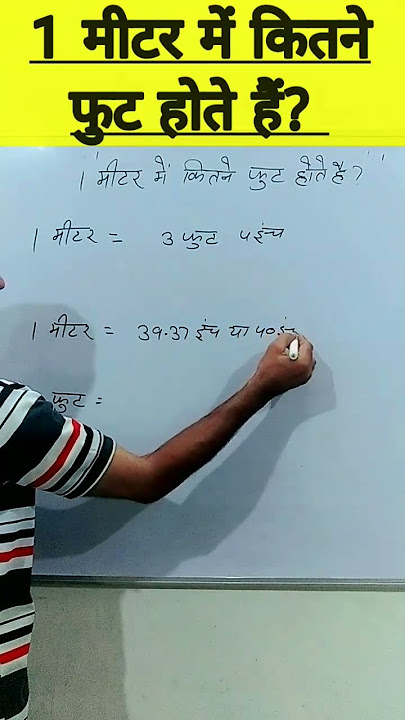 1 मीटर में कितने
फ़ुट होते हैं?
1 मीटर में कितने फुट होते है?
1 मीटर = 3 फुट 4 इंच
1 मीटर = 39.37 इंच या 40 इंच
फुट =